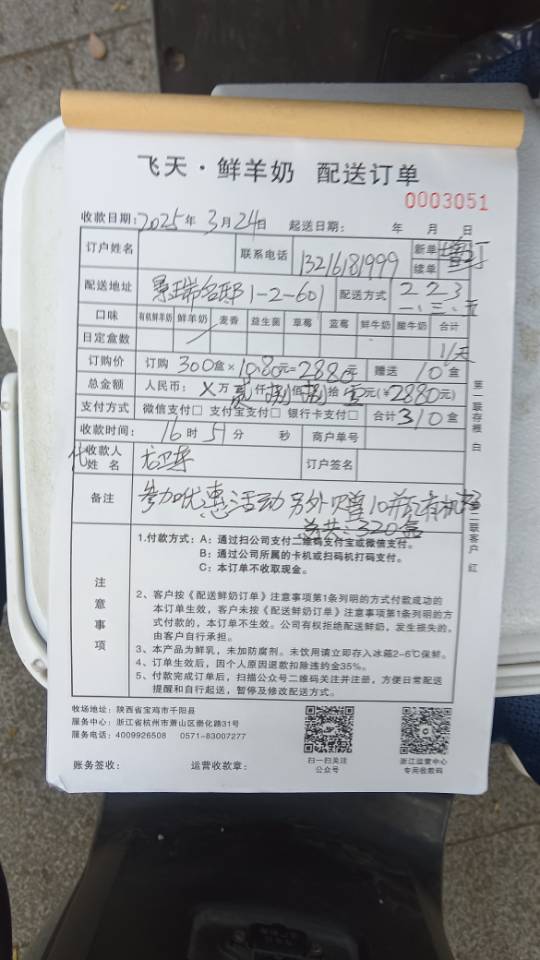 飞天·鲜羊奶 配送订单
0003051
收款日期:2025年3月24日 起送日期: 年 月 日
订户姓名 联系电话 13216181999 新单 续单 增订
配送地址 景瑞名邸1-2-601 配送方式 2 2 3 一、三、五
口味 有机鲜羊奶 鲜羊奶 麦香 益生菌 草莓 蓝莓 鲜牛奶 酸牛奶 合计
日定盒数 1/天
订购价 订购 300盒× 元=2880元 赠送 10盒
总金额 人民币: X万贰仟捌佰捌拾零元(¥2880元)
支付方式 微信支付□ 支付宝支付□ 银行卡支付□ 合计310盒
收款时间: 16时51分 秒 商户单号
代收款人姓名 订户签名
备注 参加优惠活动另外赠10瓶有机
总共:320盒
注意事项
1.付款方式:A:通过扫公司支付二维码支付宝或微信支付。
B:通过公司所属的卡机或扫码机打码支付。
C:本订单不收取现金。
2、客户按《配送鲜奶订单》注意事项第1条列明的方式付款成功的
本订单生效,客户未按《配送鲜奶订单》注意事项第1条列明的方
式付款的,本订单不生效。公司有权拒绝配送鲜奶,发生损失的,
由客户自行承担。
3、本产品为鲜乳,未加防腐剂。未饮用请立即存入冰箱2-6℃保鲜。
4、订单生效后,因个人原因退款扣除违约金35%。
5、付款完成订单后,扫描公众号二维码关注并注册,方便日常配送
提醒和自行起送,暂停及修改配送方式。
第一联存根 白
二联客户 红
牧场地址:陕西省宝鸡市千阳县
服务中心:浙江省杭州市萧山区崇化路31号
服务电话:4009926508 0571-83007277
扫一扫关注
公众号
浙江运营中心
专用收款码
账务签收: 运营收款章: